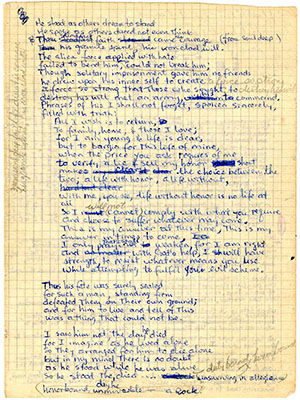 He stood as others dream to stand
He spoke as others dared not even think
Thru faith came courage (from soul deep)
his granite spirit, his ironclad will.
The alien force applied with hate
failed to bend him, could not break him;
Though solitary imprisonment gave him no friends
he drew upon his inner self to create
a force so strong that those who sought to
destroy his will, met an army to command.
Phrases of his I shall not forget, spoken sincerely,
filled with truth:
All I wish is to return,
To family, home, & those I love;
for I am young & life is dear,
but to bargain for this life of mine,
when the price you ask requires of me
to verify a lie & sell my honor short
makes the choice between the
two; a life with honor, a life without,
With me, you see, life without honor is no life at
all
So I cannot comply with what you require
and choose to suffer whatever may come
This is my answer at this time, This is my
answer in times to come,
I only pray not to weaken, for I am right
and with God's help, I will have
strength to resist whatever means you use
While attempting to fulfill your evil scheme.
Thus his fate was surely sealed
for such a man, standing firm
defeated them on their own ground;
and for him to live and tell of This
was a thing that could not be.
I saw him not the day he died
for I imagine as he lived alone
So They arranged for him to die alone
but in my mind There is no doubt
as he stood while he was alive
So he stood & died unswerving in allegiance
honorbound, — Rock.